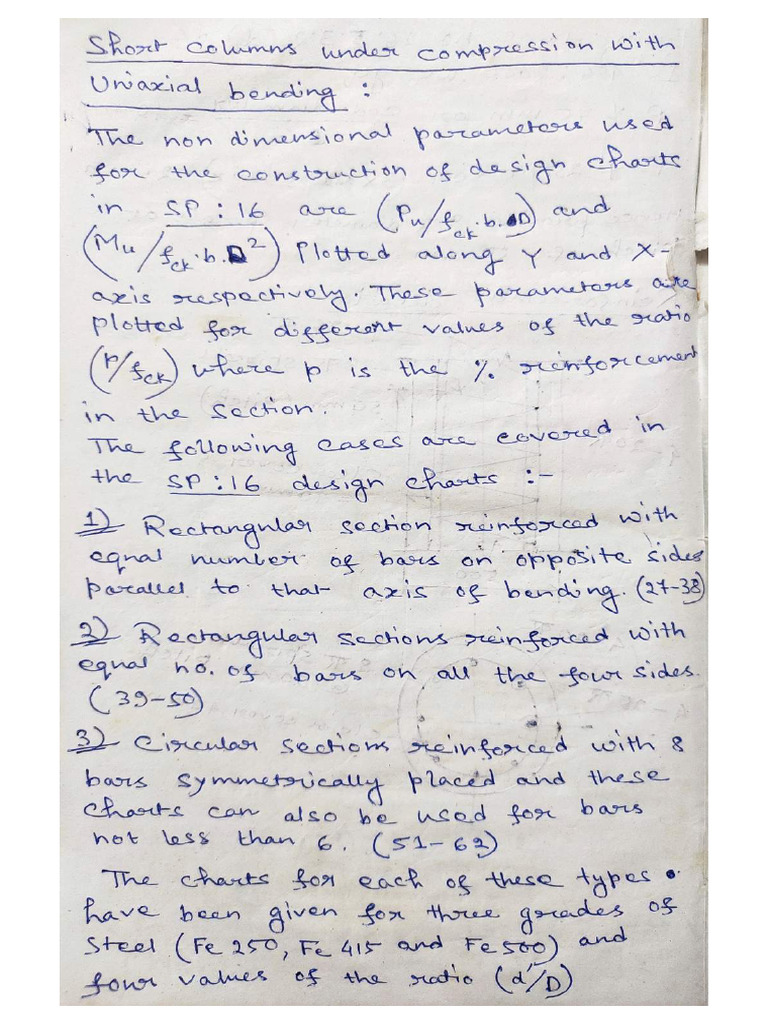 Short columns under compression with
Uniaxial bending :
The non dimensional parameters used
for the construction of design charts
in SP : 16 are (Pu/fck.b.D) and
(Mu/fck.b.D²) Plotted along Y and X-
axis respectively. These parameters are
plotted for different values of the ratio
(p/fck) where p is the % reinforcement
in the section.
The following cases are covered in
the SP : 16 design charts :-
1) Rectangular section reinforced with
equal number of bars on opposite sides
parallel to that axis of bending. (27-38)
2) Rectangular sections reinforced with
equal no. of bars on all the four sides.
(39-50)
3) Circular sections reinforced with 8
bars symmetrically placed and these
charts can also be used for bars
not less than 6. (51-62)
The charts for each of these types
have been given for three grades of
Steel (Fe 250, Fe 415 and Fe 500) and
four values of the ratio (d'/D)